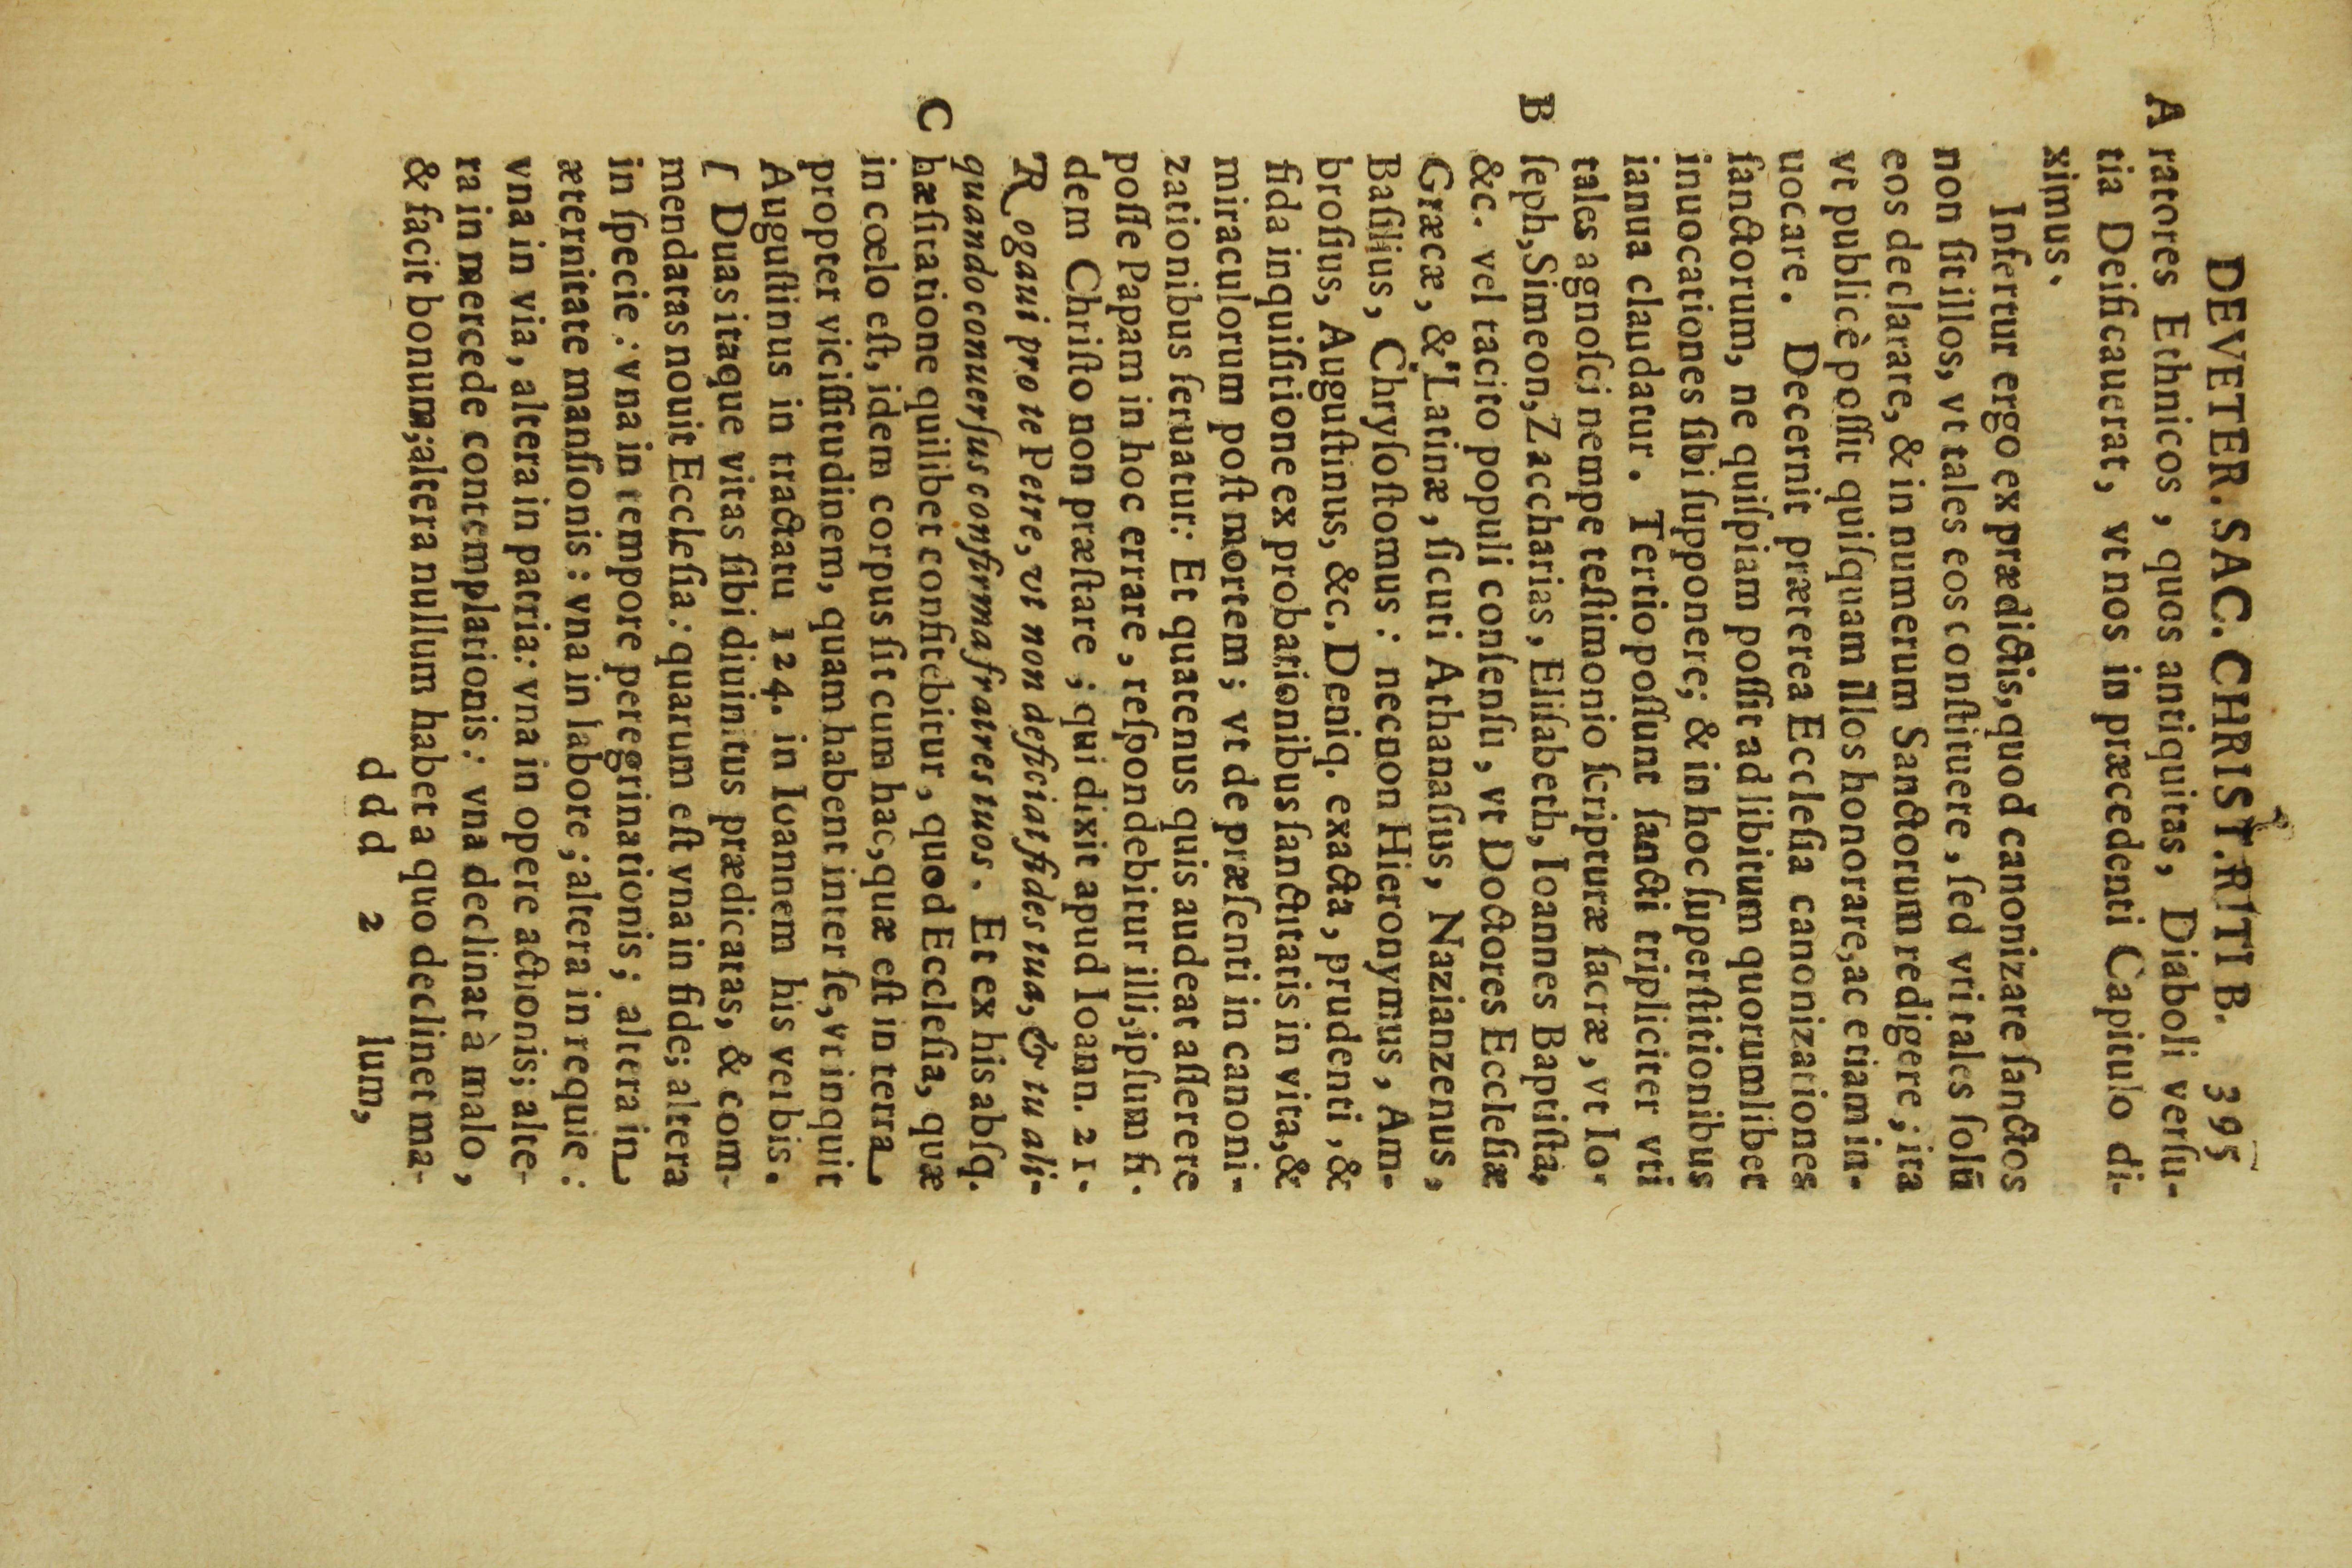 DE VETER. SAC. CHRIST. RITIB. 395
A ratores Ethnicos, quos antiquitas, Diaboli verſu-
tia Deificauerat, vt nos in præcedenti Capitulo di-
ximus.
Infertur ergo ex prædictis, quod canonizare ſanctos
non ſit illos, vt tales eos conſtituere, ſed vti tales ſolũ
eos declarare, & in numerum Sanctorum redigere; ita
vt publicè poſſit quiſquam illos honorare, ac etiam in-
uocare. Decernit præterea Eccleſia canonizationes
ſanctorum, ne quiſpiam poſſit ad libitum quorumlibet
inuocationes ſibi ſupponere; & in hoc ſuperſtitionibus
ianua claudatur. Tertio poſſunt ſancti tripliciter vti
tales agnoſci nempe teſtimonio ſcripturæ ſacræ, vt Io-
B ſeph, Simeon, Zaccharias, Eliſabeth, Ioannes Baptiſta,
&c. vel tacito populi conſenſu, vt Doctores Eccleſiæ
Græcæ, & Latinæ, ſicuti Athanaſius, Nazianzenus,
Baſilius, Chryſoſtomus: necnon Hieronymus, Am-
broſius, Auguſtinus, &c. Deniq. exacta, prudenti, &
fida inquiſitione ex probationibus ſanctitatis in vita, &
miraculorum poſt mortem; vt de præſenti in canoni-
zationibus ſeruatur: Et quatenus quis audeat aſſerere
poſſe Papam in hoc errare, reſpondebitur illi, ipſum fi-
dem Chriſto non præſtare; qui dixit apud Ioann. 21.
Rogaui pro te Petre, vt non deficiat fides tua, & tu ali-
quando conuerſus confirma fratres tuos. Et ex his abſq.
C hæſitatione quilibet confitebitur, quod Eccleſia, quæ
in cœlo eſt, idem corpus ſit cum hac, quæ eſt in terra
propter viciſſitudinem, quam habent inter ſe, vt inquit
Auguſtinus in tractatu 124. in Ioannem his verbis.
[ Duas itaque vitas ſibi diuinitus prædicatas, & com-
mendatas nouit Eccleſia: quarum eſt vna in fide; altera
in ſpecie: vna in tempore peregrinationis; altera in
æternitate manſionis: vna in labore; altera in requie:
vna in via, altera in patria: vna in opere actionis; alte-
ra in mercede contemplationis: vna declinat à malo,
& facit bonum; altera nullum habet a quo declinet ma-
ddd 2 lum,